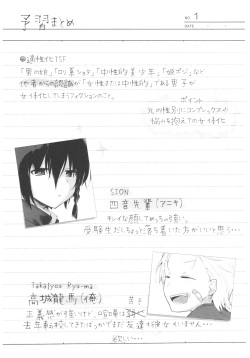 NO. 1
DATE
予習まとめ
●適性化TSF
「男の娘」「ロリ系ショタ」「中性的美少年」「姫ポジ」など
他者からの認識が「女性または中性的」である男子が
女体化してしまうフィクションのこと。
ポイント
元の性別にコンプレックスや
悩みを抱えての女体化
SION
四音先輩(アニキ)
キレイな顔してめっちゃ強い。
受験生だしちょっと落ち着いた方がいいと思う…
Takajyou Ryu-ma
高城龍馬(俺)
正義感が強いけど、喧嘩は弱く
苦手
去年転校してきたばっかでまだ友達も彼女もいません…
欲しい…